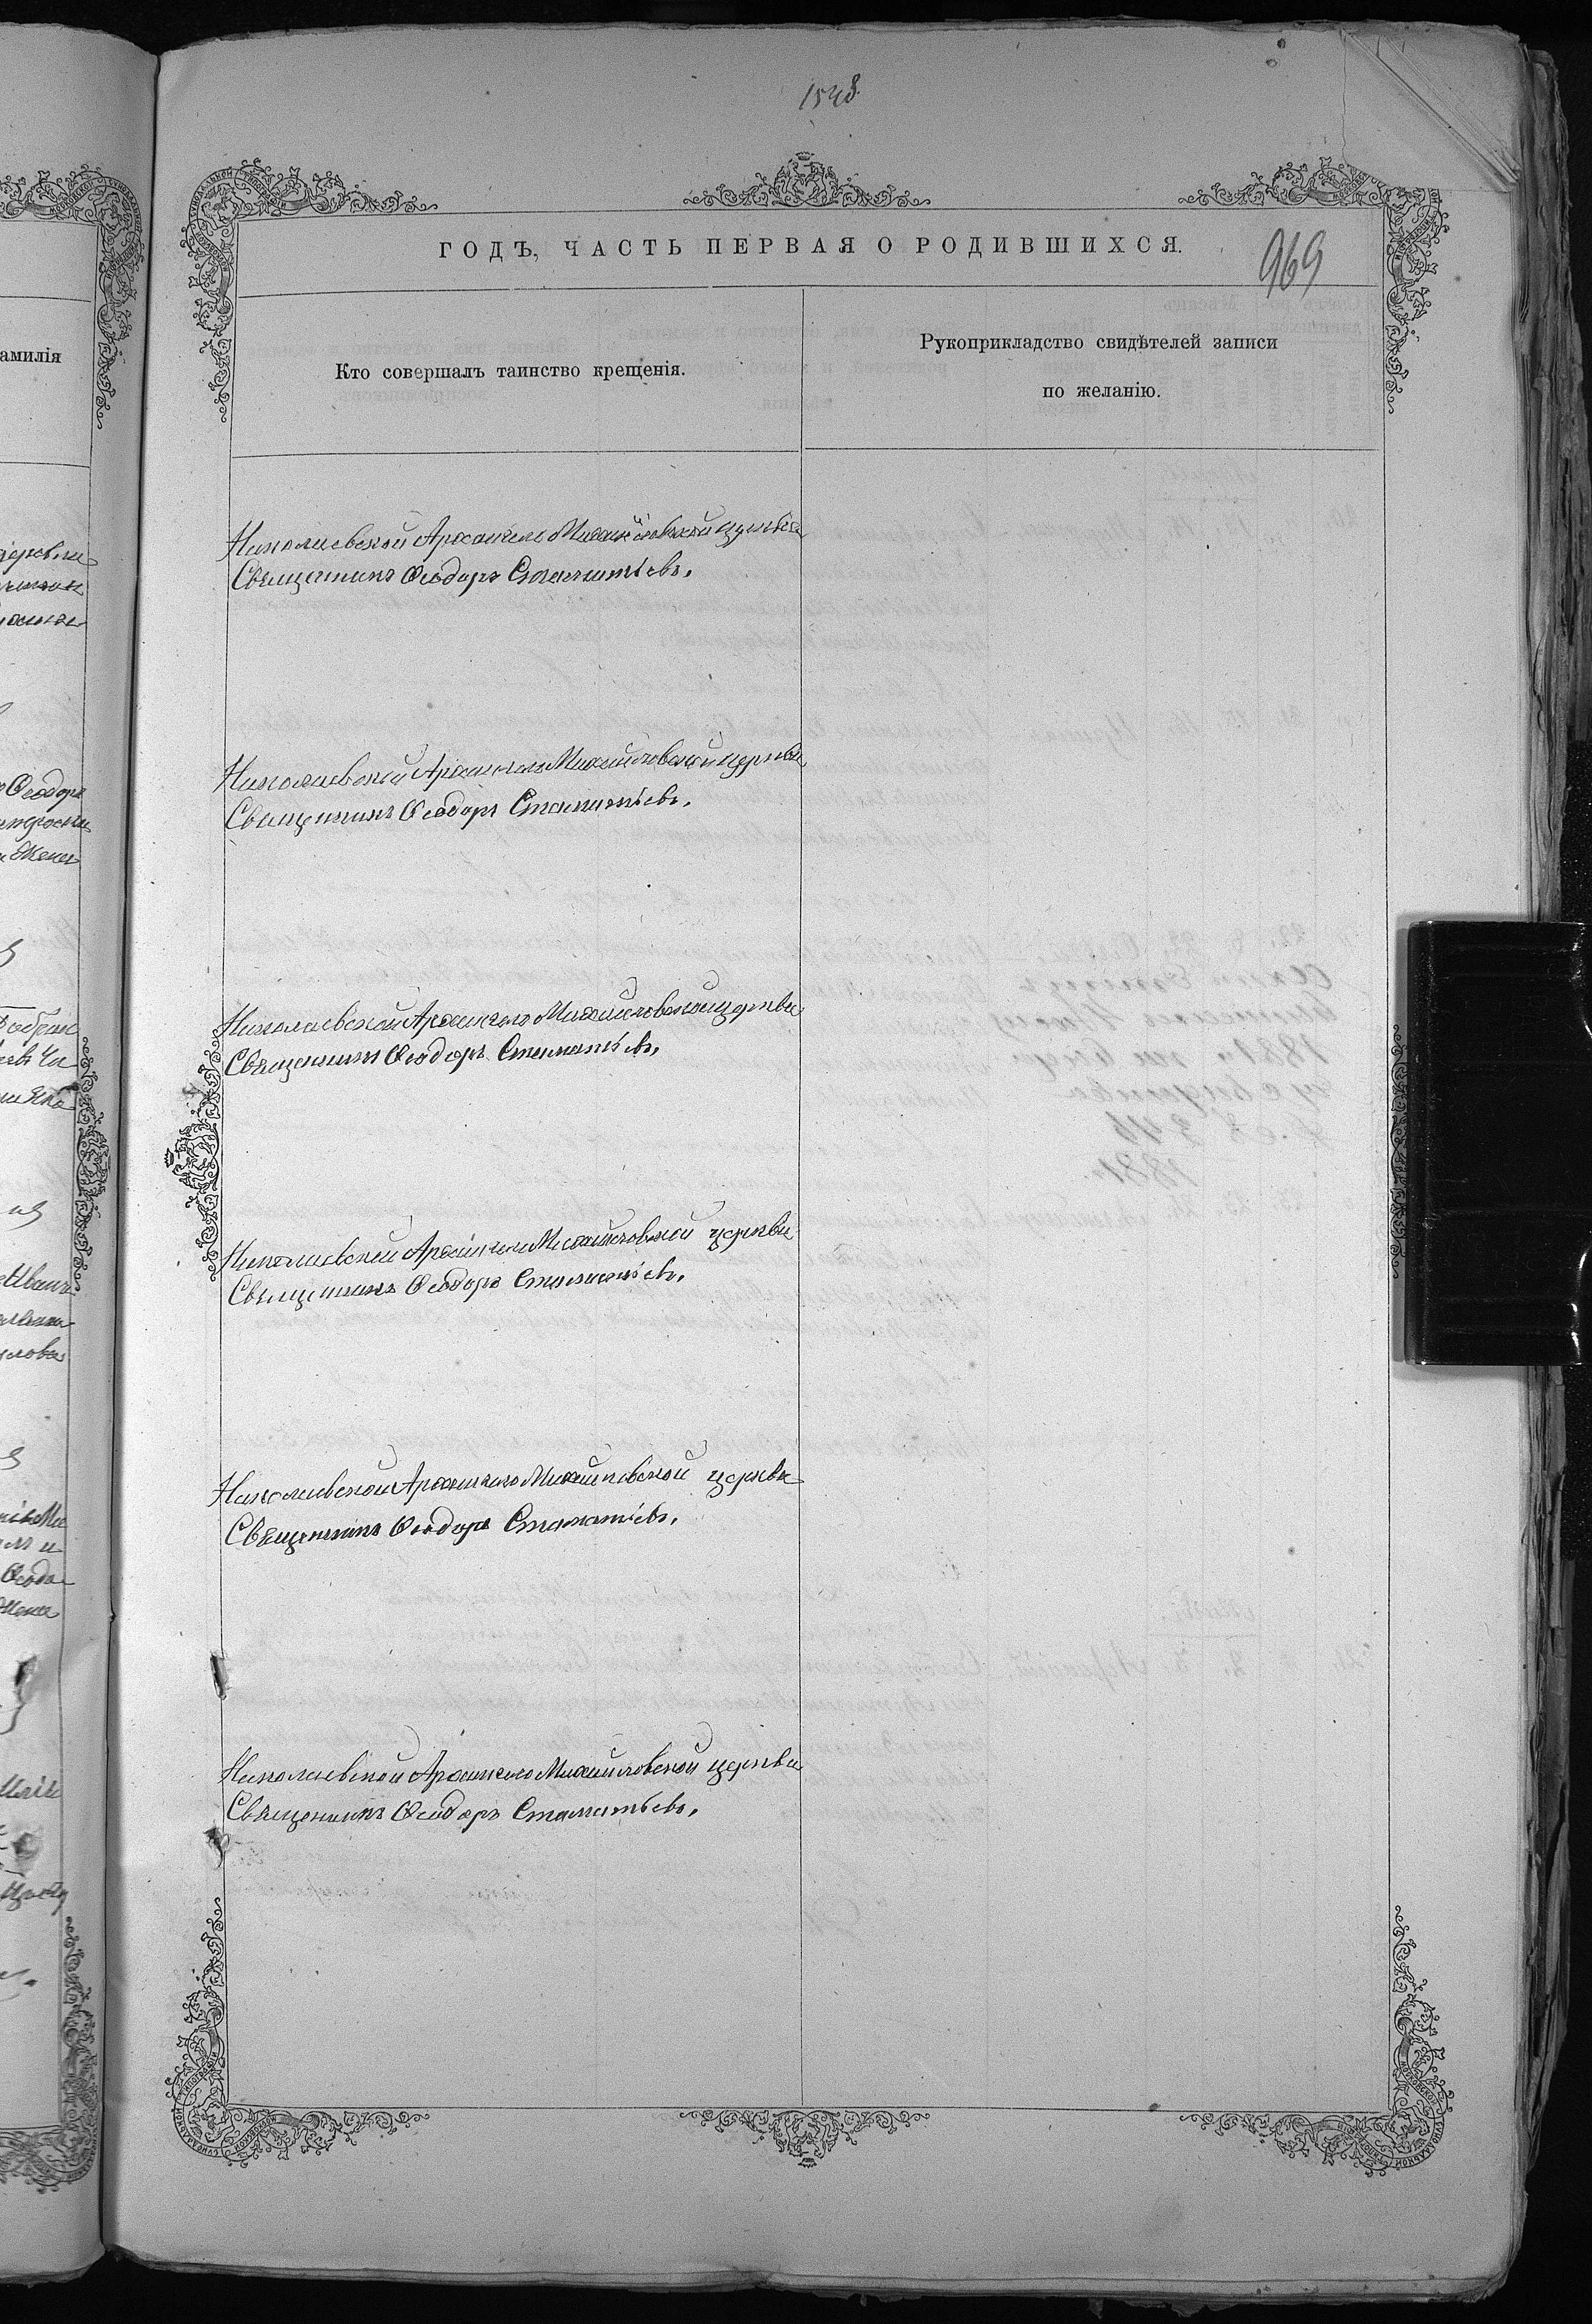 1548
969
ГОДЪ, ЧАСТЬ ПЕРВАЯ О РОДИВШИХСЯ.
амилія
Кто совершалъ таинство крещенія.
Рукоприкладство свидѣтелей записи
по желанію.
Николаевской Архангело Михайловской церкви
Священникъ Ѳеодоръ Стаматіевъ.
Николаевской Архангело Михайловской церкви
Священникъ Ѳеодоръ Стаматіевъ.
Николаевской Архангело Михайловской церкви
Священникъ Ѳеодоръ Стаматіевъ.
Николаевской Архангело Михайловской церкви
Священникъ Ѳеодоръ Стаматіевъ.
Николаевской Архангело Михайловской церкви
Священникъ Ѳеодоръ Стаматіевъ.
Николаевской Архангело Михайловской церкви
Священникъ Ѳеодоръ Стаматіевъ.